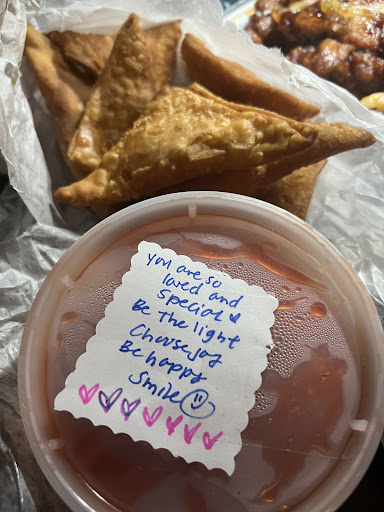 you are so
loved and
special
Be the light
Choose joy
Be happy
Smile